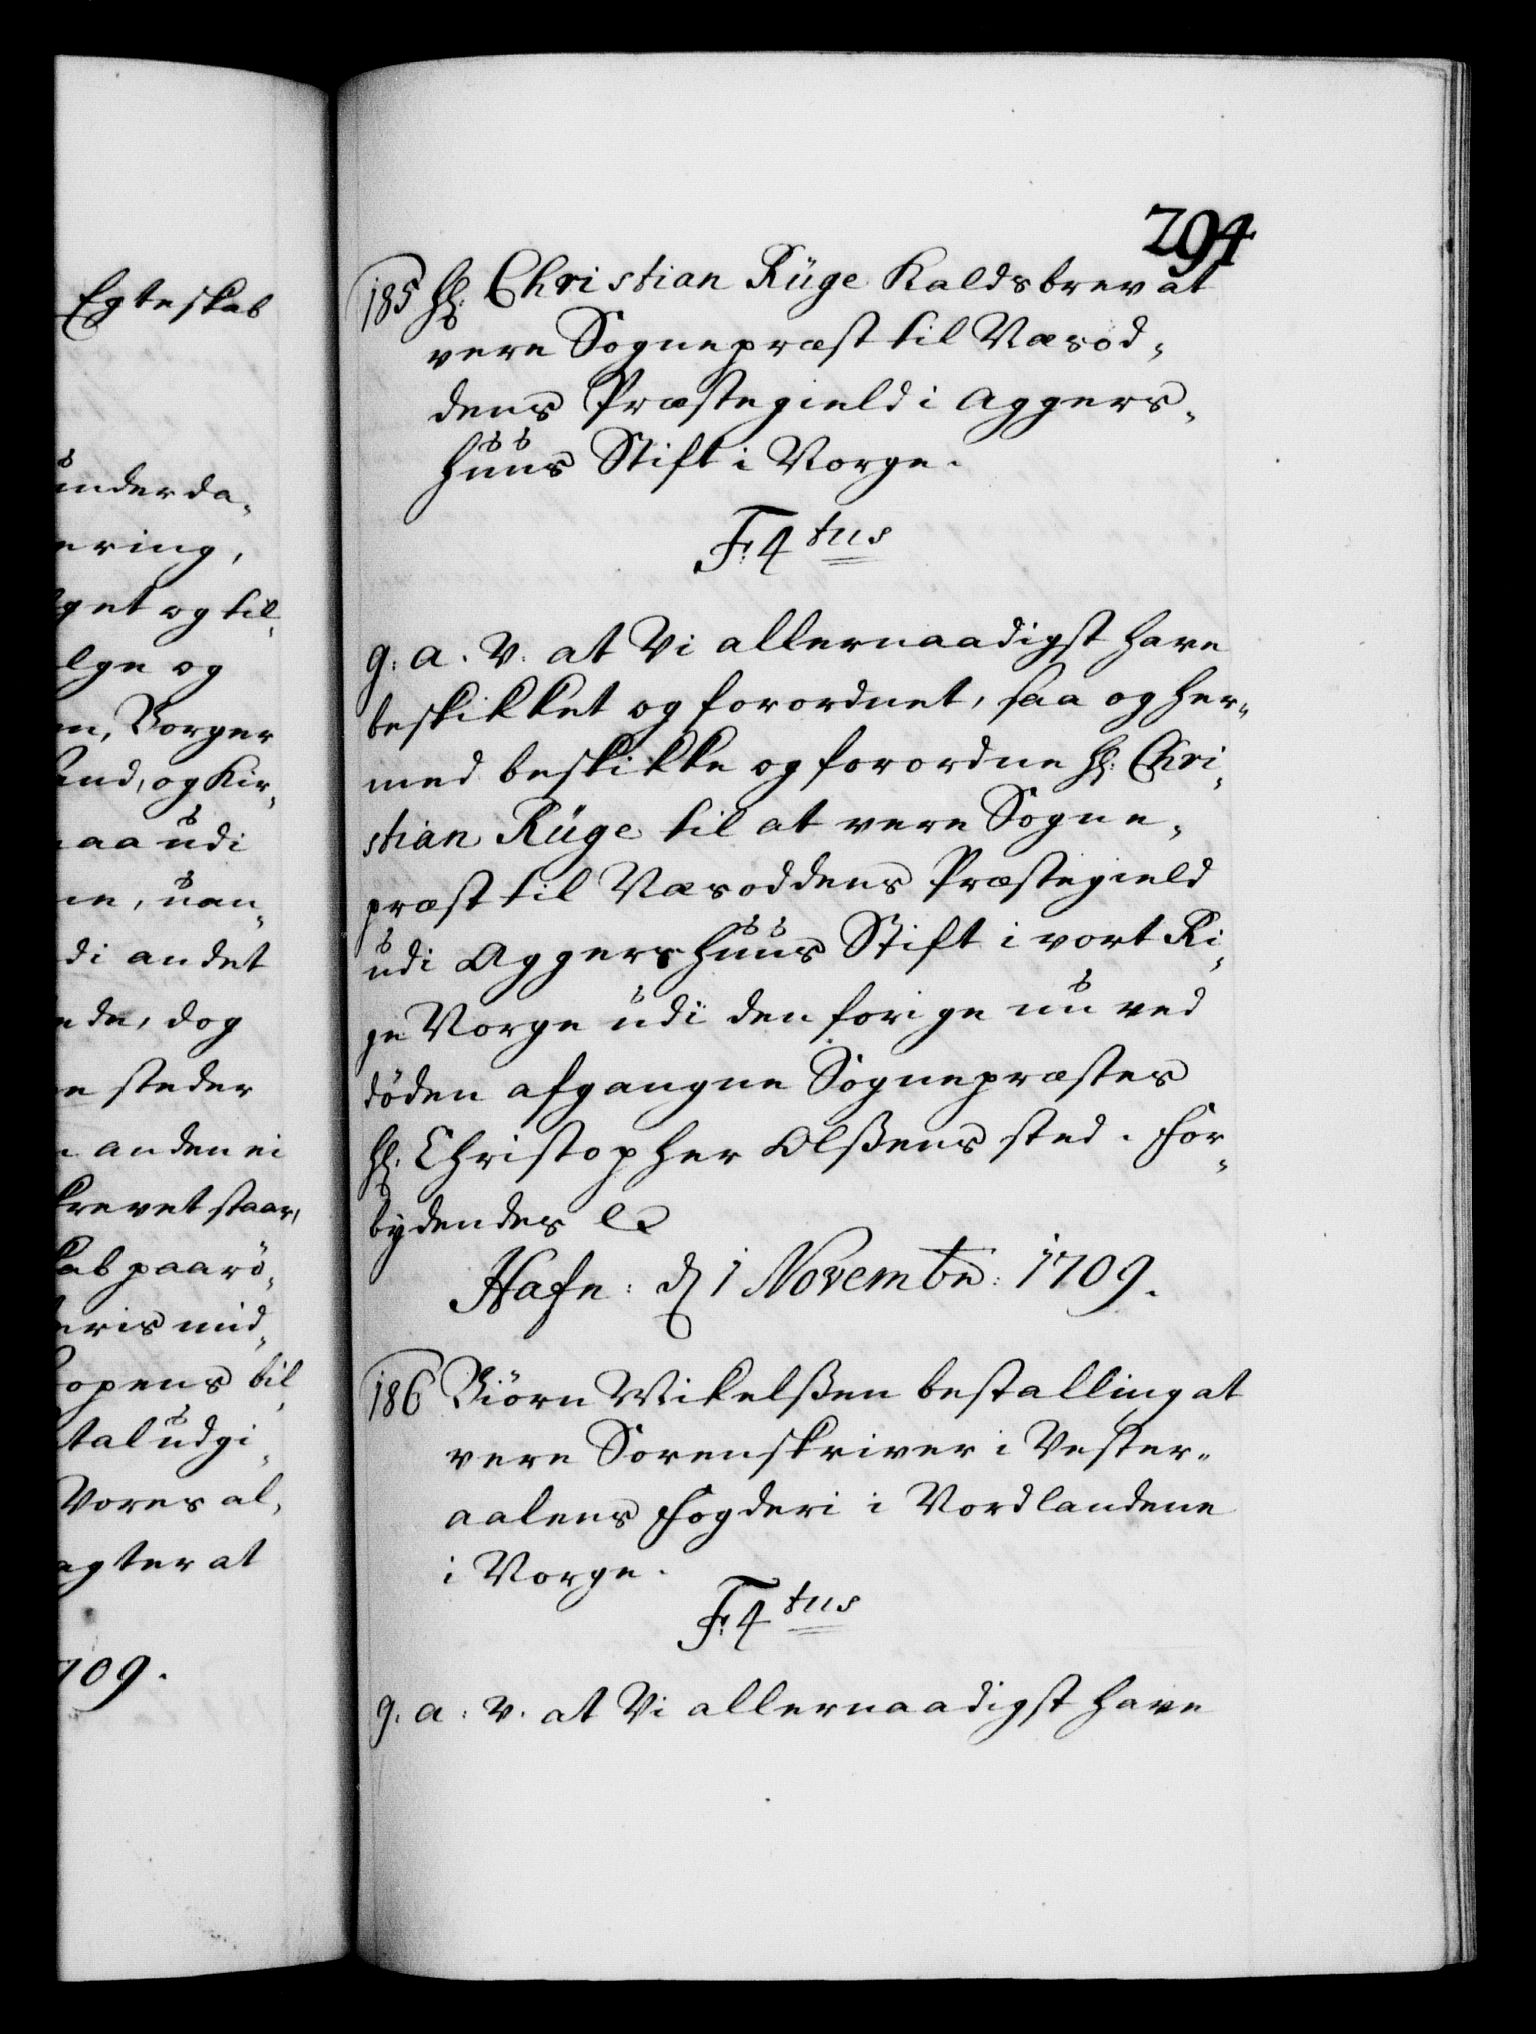 Egteskab
under da-
ering,
get og til-
lge og
n, Borger
and, og Kir-
aa udi
ne, uan-
di andet
de, dog
e steder
anden ei
krevet staar,
kab paarö-
eris mid-
kopens til-
tal udgi-
Vores al-
agter at
709.
294
185 Hr: Christian Rüge Kaldsbrev at
vere Sognepræst til Næsod-
dens Præstegield i Aggers-
huus Stift i Norge.
F: 4tus
G: A: V: at Vi allernaadigst have
beskikket og forordnet, saa og her-
med beskikke og forordne Hr: Chri-
stian Rüge til at vere Sogne-
præst til Næsoddens Præstegield
udi Aggershuus Stift i vort Ri-
ge Norge udi den forige nu ved
döden afgangne Sognepræstes
Hr: Christopher Olßens sted. For-
bydendes etc
Hafn: d 1 Novembr: 1709.
186 Biörn Mikelßen bestalling at
vere Sorenskriver i Vester-
aalens Fogderi i Nordlandene
i Norge.
F: 4tus
G: A: V: at Vi allernaadigst have